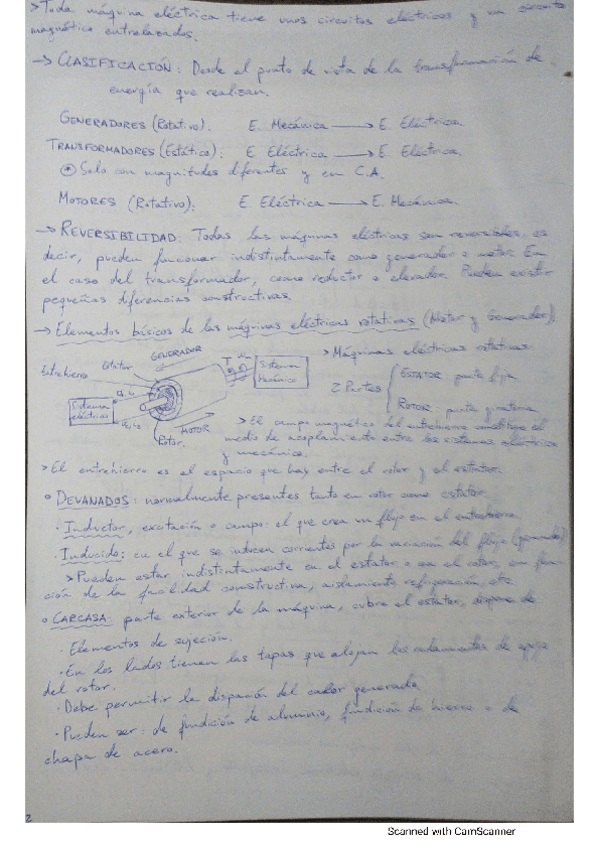 > Toda máquina eléctrica tiene unos circuitos eléctricos y un circuito
magnético entrelazados.
→ CLASIFICACIÓN: Desde el punto de vista de la transformación de
energía que realizan.
GENERADORES (Rotativo): E. Mecánica → E. Eléctrica
TRANSFORMADORES (Estático): E Eléctrica → E. Eléctrica
Solo con magnitudes diferentes y en C.A.
MOTORES (Rotativo): E. Eléctrica → E. Mecánica.
→ REVERSIBILIDAD: Todas las máquinas eléctricas son reversibles, es
decir, pueden funcionar indistintamente como generador o motor. En
el caso del transformador, como reductor o elevador. Pueden existir
pequeñas diferencias constructivas.
→ Elementos básicos de las máquinas eléctricas rotativas (Motor y Generador)
Entrehierro Estator GENERADOR T
Sistema
Mecánico
Sistema
eléctrico
Rotor. MOTOR
> Máquinas eléctricas rotativas
2 Partes
ESTATOR: parte fija
ROTOR: parte giratoria
> El campo magnético del entrehierro constituye el
medio de acoplamiento entre los sistemas eléctrico
y mecánico.
> El entrehierro es el espacio que hay entre el rotor y el estator.
° DEVANADOS: normalmente presentes tanto en rotor como estator.
· Inductor, excitación o campo: el que crea un flujo en el entrehierro
· Inducido: en el que se inducen corrientes por la variación del flujo (generado)
> Pueden estar indistintamente en el estator o en el rotor, en fun-
ción de la facilidad constructiva, aislamiento, refrigeración, etc.
° CARCASA: parte exterior de la máquina, cubre el estator, dispone de
· Elementos de sujeción.
· En los lados tienen las tapas que alojan los rodamientos de apoyo
del rotor.
· Debe permitir la disipación del calor generado
· Pueden ser: de fundición de aluminio, fundición de hierro o de
chapa de acero.
2
Scanned with CamScanner